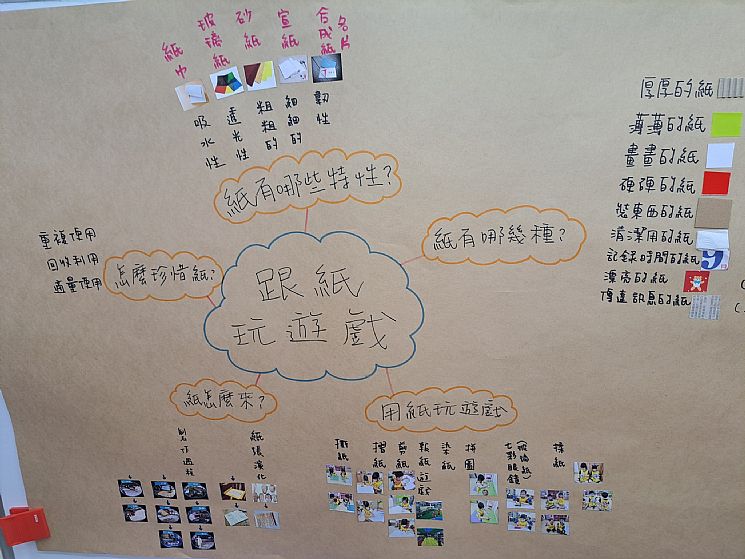 紙巾
玻璃紙
砂紙
宣紙
合成紙
名片
吸水性
透光性
粗粗的
細細的
韌性
紙有哪些特性?
厚厚的紙
薄薄的紙
畫畫的紙
硬硬的紙
裝東西的紙
清潔用的紙
記錄時間的紙
漂亮的紙
傳達訊息的紙
紙有哪幾種?
重複使用
回收利用
適量使用
怎麼珍惜紙?
跟紙
玩遊戲
紙怎麼來?
製作過程
紙張演化
用紙玩遊戲
撕紙
摺紙
剪紙
報紙遊戲
染紙
拼圖
七彩眼鏡
(玻璃紙)
揉紙